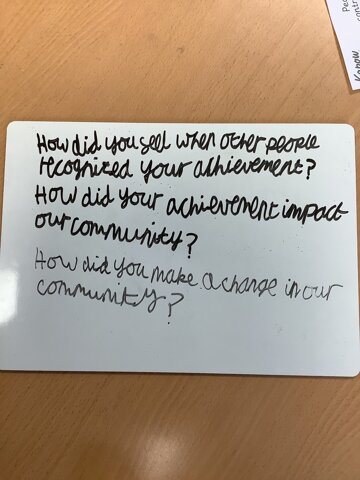 How did you feel when other people
recognized your achievement?
How did your achievement impact
our community?
How did you make a change in our
community?
Know